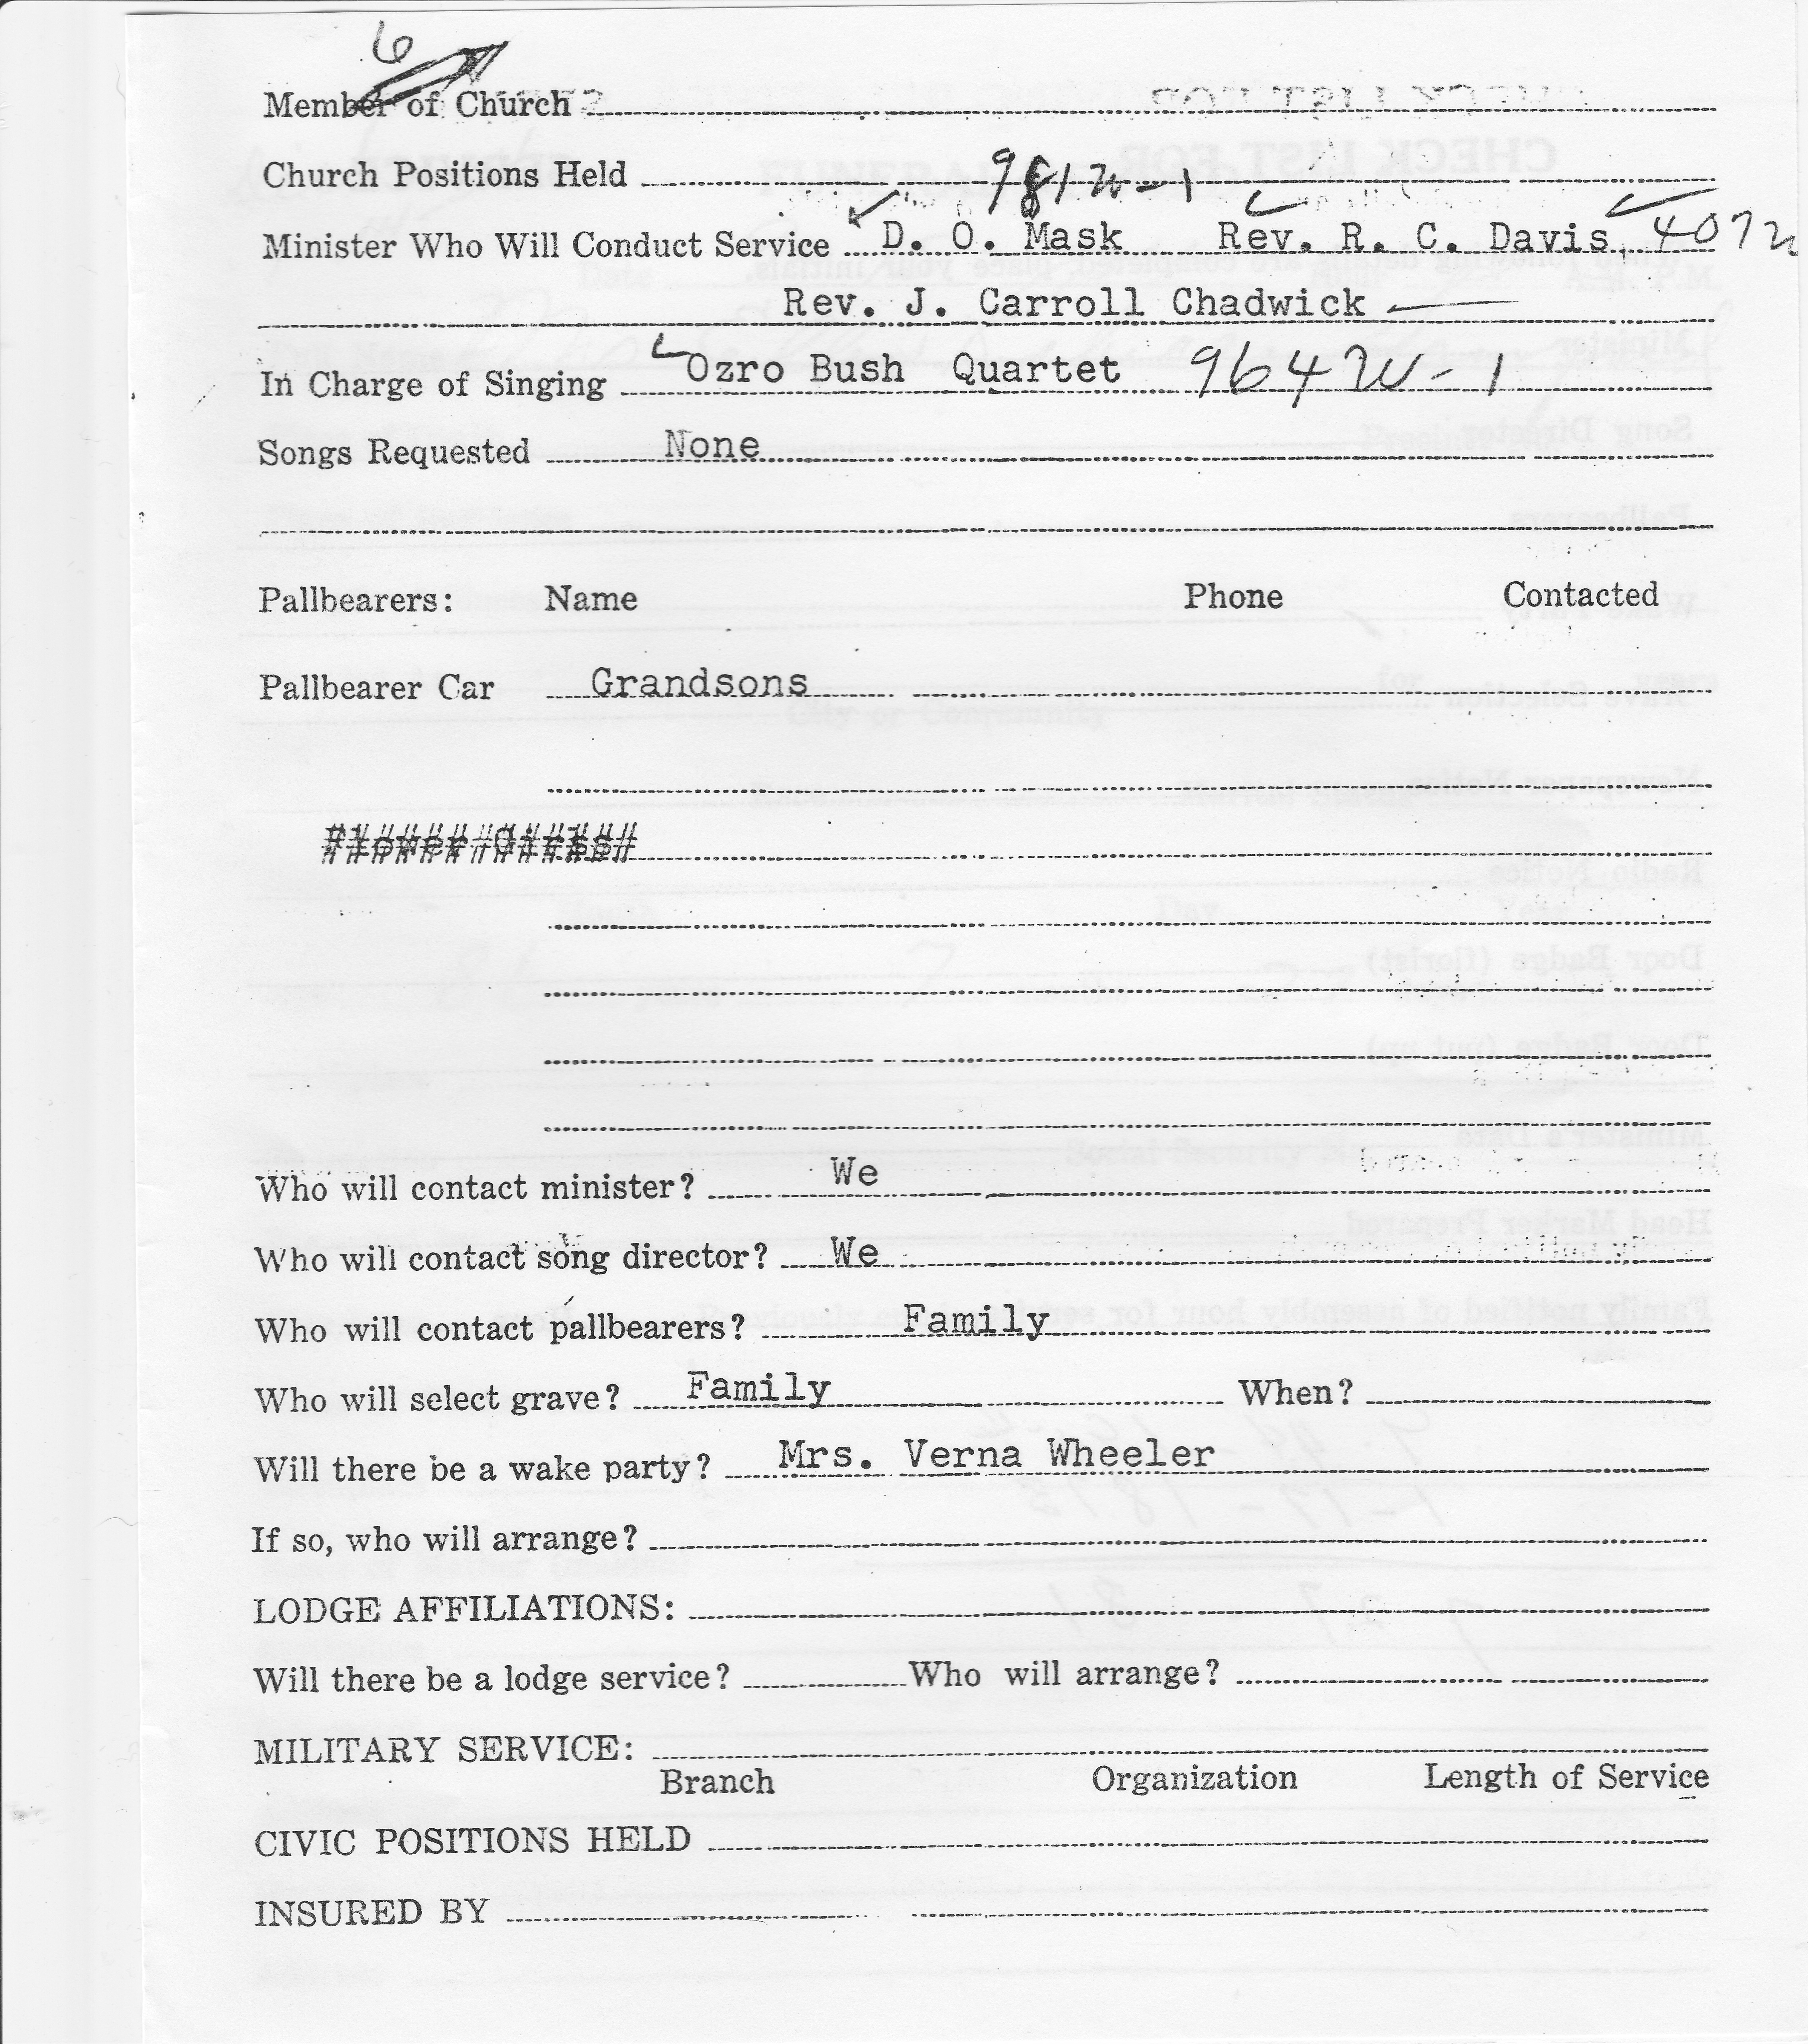 6
Member of Church
Church Positions Held 981W-1
Minister Who Will Conduct Service D. O. Mask Rev. R. C. Davis 407W
Rev. J. Carroll Chadwick
In Charge of Singing Ozro Bush Quartet 964W-1
Songs Requested None
Pallbearers: Name Phone Contacted
Pallbearer Car Grandsons
Who will contact minister? We
Who will contact song director? We
Who will contact pallbearers? Family
Who will select grave? Family When?
Will there be a wake party? Mrs. Verna Wheeler
If so, who will arrange?
LODGE AFFILIATIONS:
Will there be a lodge service? Who will arrange?
MILITARY SERVICE:
Branch Organization Length of Service
CIVIC POSITIONS HELD
INSURED BY